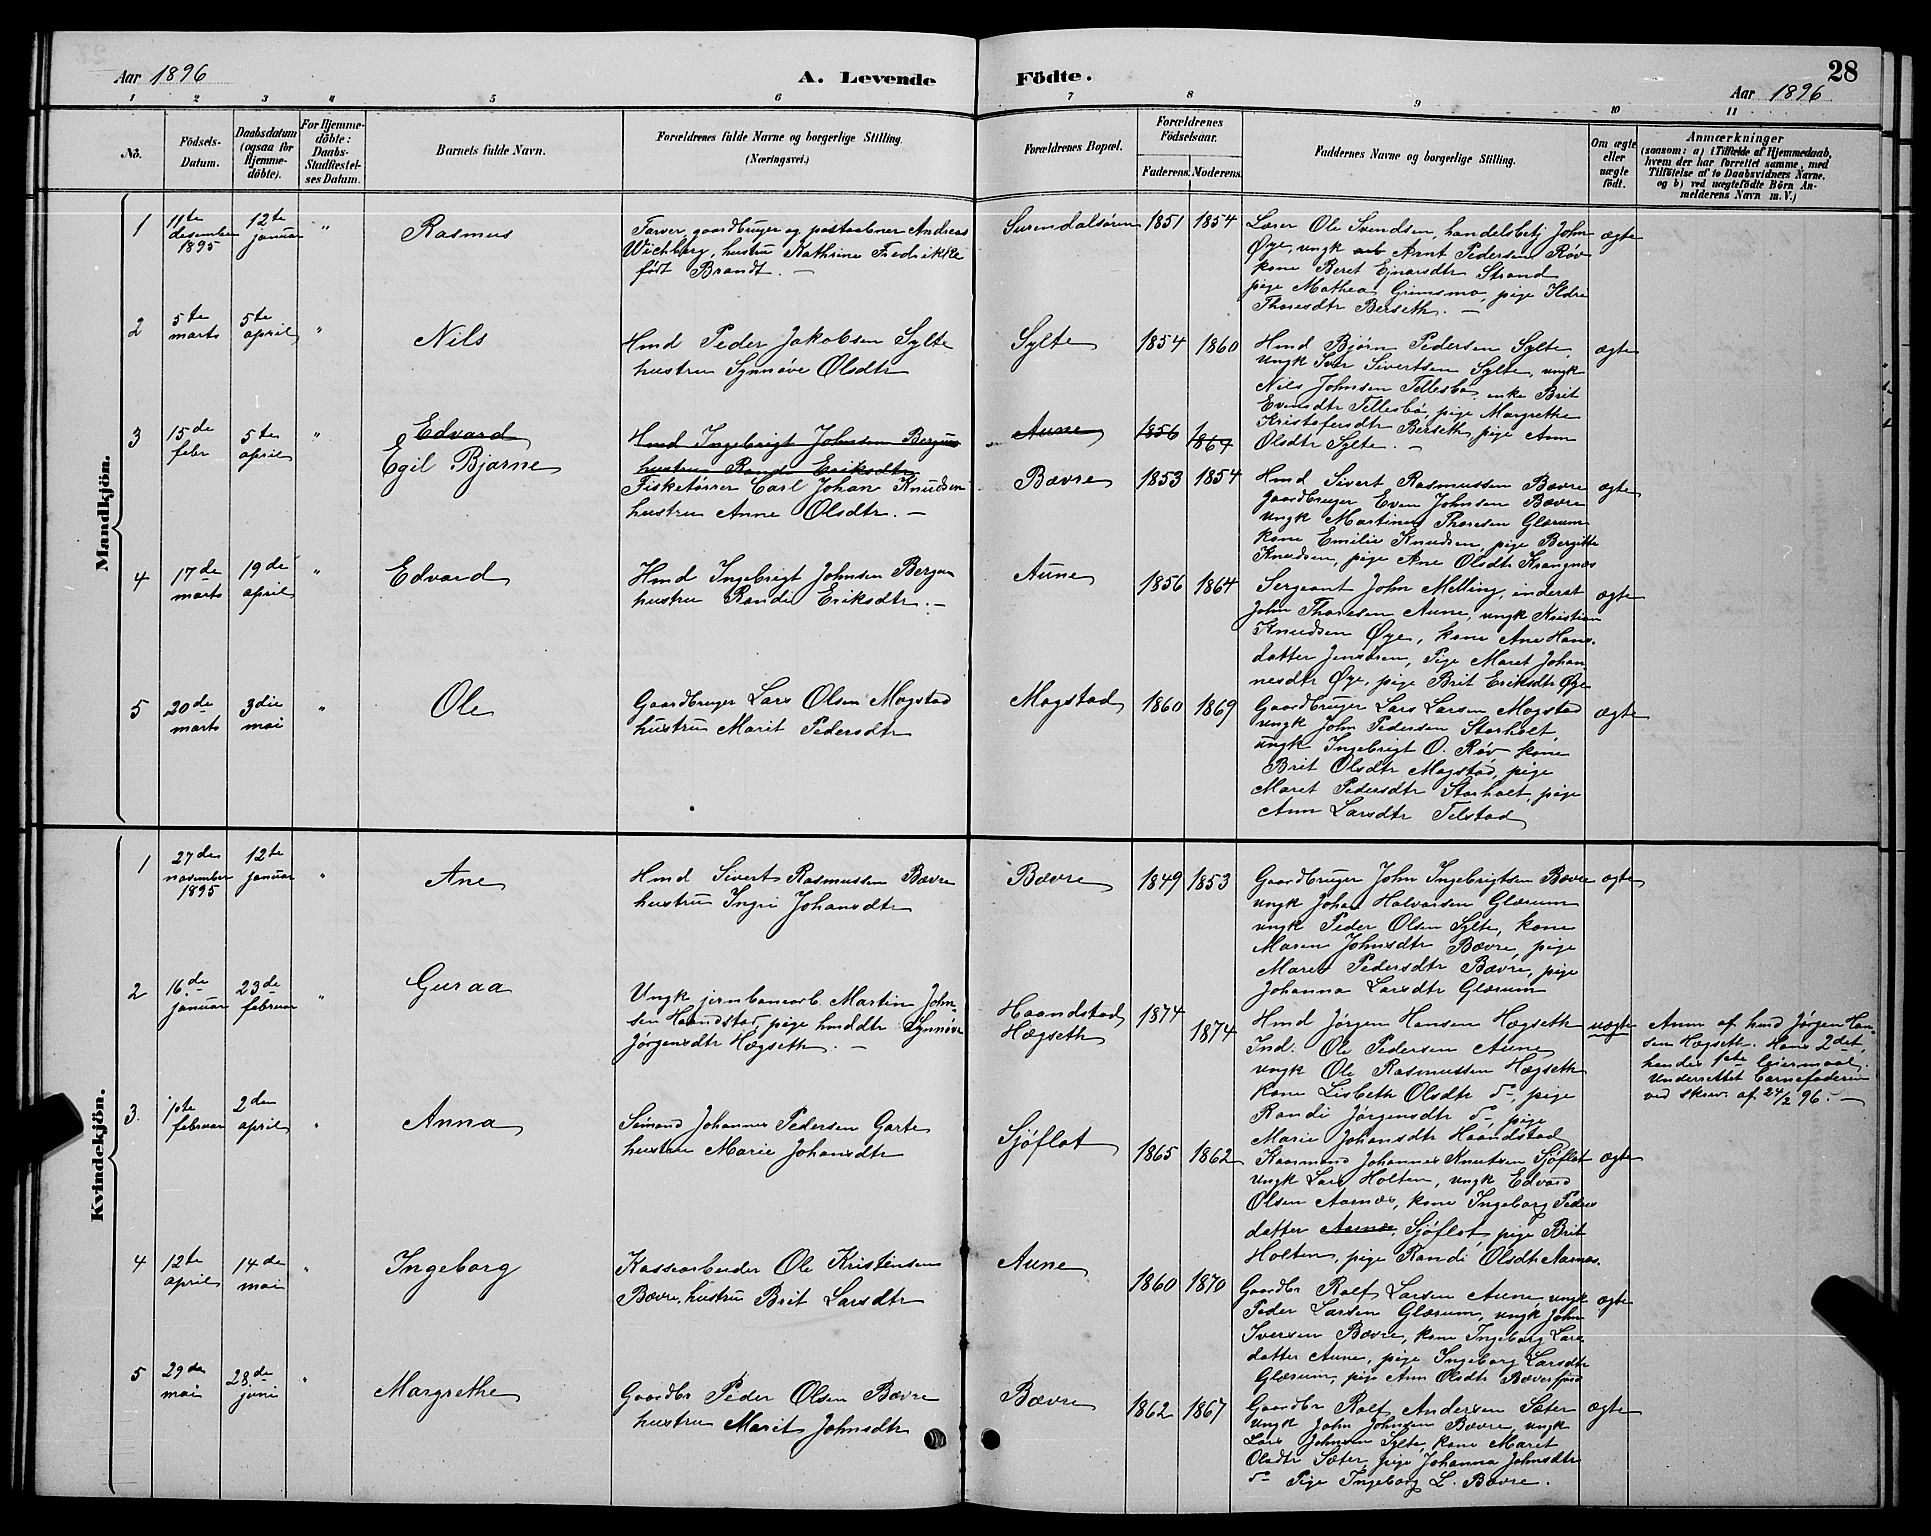 Aar 1896
A. Levende
Födte.
28
Aar 1896
1 2 3 4 5 6 7 8 9 10 11
No.
Födsels-
Datum.
Daabsdatum
(ogsaa for
Hjemme-
döbte).
For Hjemme-
döbte:
Daabs-
Stadfæstel-
ses Datum.
Barnets fulde Navn.
Forældrenes fulde Navne og borgerlige Stilling.
(Næringsvei.)
Forældrenes Bopæl.
Forældrenes
Födselsaar.
Faderens. Moderens.
Faddernes Navne og borgerlige Stilling.
Om ægte
eller
uægte
födt.
Anmærkninger
(saasom: a) i Tilfælde af Hjemmedaab,
hvem der har forrettet samme, med
Tilföielse af to Daabsvidners Navne.
og b) ved uægtefödte Börn An-
melderens Navn m.V.)
Mandkjön.
1
11te
desember
1895
12te
januar
"
Rasmus
Farver, gaardbruger og postaabner Andreas
Wichberg, hustru Kathrine Fredrikke
født Brandt. —
Surendalsøren
1851 1854
Lærer Ole Svendsen, handelsbetj John
Øye, ungk Arnt Pedersen Røv
kone Beret Ejnarsdtr Strand
pige Mathea Grimsmo, pige Ildri
Thoresdtr Berseth. —
ægte
2
5te
marts
5te
april
"
Nils
Hmd Peder Jakobsen Sylte
hustru Synnøve Olsdtr
Sylte
1854 1860
Hmd Bjørn Pedersen Sylte,
ungk Iver Sivertsen Sylte, ungk
Nils Johnsen Tellesbø, enke Brit
Evensdtr Tellesbø, pige Margrethe
Kristofersdtr Berseth, pige Ann
Olsdtr Sylte. —
ægte
3
15de
febr
5te
april
"
Edvard
Egil Bjarne
Hmd Ingebrigt Johnsen Bergun
hustru Randi Eriksdtr
Fisketører Carl Johan Knudsen
hustru Anne Olsdtr. —
Aune
1856 1864
Bævre
1853 1854
Hmd Sivert Rasmussen Bævre
Gaardbruger Even Johnsen Bævre
ungk Martinus Thoresen Glærum
kone Emilie Knudsen, pige Bergitte
Knudsen, pige Ane Olsdtr Krangnæs
ægte
4
17de
marts
19de
april
"
Edvard
Hmd Ingebrigt Johnsen Bergun
hustru Randi Eriksdtr. —
Aune
1856 1864
Sergeant John Melling, inderst
John Thoresen Aune, ungk Kristian
Knudsen Øye, kone Ane Hans-
datter Jenstren, Pige Maret Johan-
nesdtr Øye, pige Brit Eriksdtr Øye
ægte
5
20de
marts
3die
mai
"
Ole
Gaardbruger Lars Olsen Mogstad
hustru Marit Pedersdtr
Mogstad
1860 1869
Gaardbruger Lars Larsen Mogstad
ungk John Pedersen Storholt,
ungk Ingebrigt O. Røv kone
Brit Olsdtr Mogstad, pige
Maret Pedersdtr Storholt, pige
Ann Larsdtr Telstad
ægte
Kvindekjön.
1
27de
november
1895
12te
januar
"
Ane
Hmd Sivert Rasmussen Bævre
hustru Ingri Johansdtr
Bævre
1849 1853
Gaardbruger John Ingebrigtsen Bævre
ungk Johan Halvorsen Glærum
ungk Peder Olsen Sylte, kone
Maren Johnsdtr Bævre, pige
Maret Pedersdtr Bævre, pige
Johanna Larsdtr Glærum
ægte
2
16de
januar
23de
februar
"
Guraa
Ungk jernbanearb. Martin John-
sen Haandstad, pige hmddtr Synnøve
Jørgensdtr Hægseth. —
Haandstad
Hægseth
1874
1874
Hmd Jørgen Hansen Hægseth
Ind. Ole Pedersen Aune
ungk Ole Rasmussen Hægseth
kone Lisbeth Olsdtr do, pige
Randi Jørgensdtr do, pige
Marie Johansdtr Haandstad
uægte
Anm af hmd Jørgen Han-
sen Hægseth. Hans 2det,
hendes 1ste Leiermaal.
Underrettet barnefaderen
ved skriv. af 24/2 96. —
3.
1ste
februar
2den
april
"
Anna
Sømand Johannes Pedersen Garte
hustru Marie Johansdtr
Sjøflot
1865 1862
Kaarmand Johannes Knutsen Sjøflot
ungk Lars Holten, ungk Edvard
Olsen Aarnæs, kone Ingeborg Peders
datter Aune, Sjøflot, pige Brit
Holten, pige Randi Olsdtr Aarnæs.
ægte
4
12te
april
14de
mai
"
Ingeborg
Kassearbeider Ole Kristensen
Bævre, hustru Brit Larsdtr
Aune
1860 1870
Gaardbr Rolf Larsen Aune ungk
Peder Larsen Glærum, ungk John
Iversen Bævre, kone Ingeborg Lars
datter Aune, pige Ingeborg Larsdtr
Glærum, pige Ann Olsdtr Bæverfjord
ægte
5
29de
mai
28de
juni
"
Margrethe
Gaardbr Peder Olsen Bævre
hustru Marit Johnsdtr
Bævre
1862 1867
Gaardbr Rolf Andersen Sæter
ungk John Johnsen Bævre, ungk
Lars Johnsen Sylte, kone Maret
Olsdtr Sæter, pige Johanna Johnsdtr
do Pige Ingeborg L. Bævre.
ægte